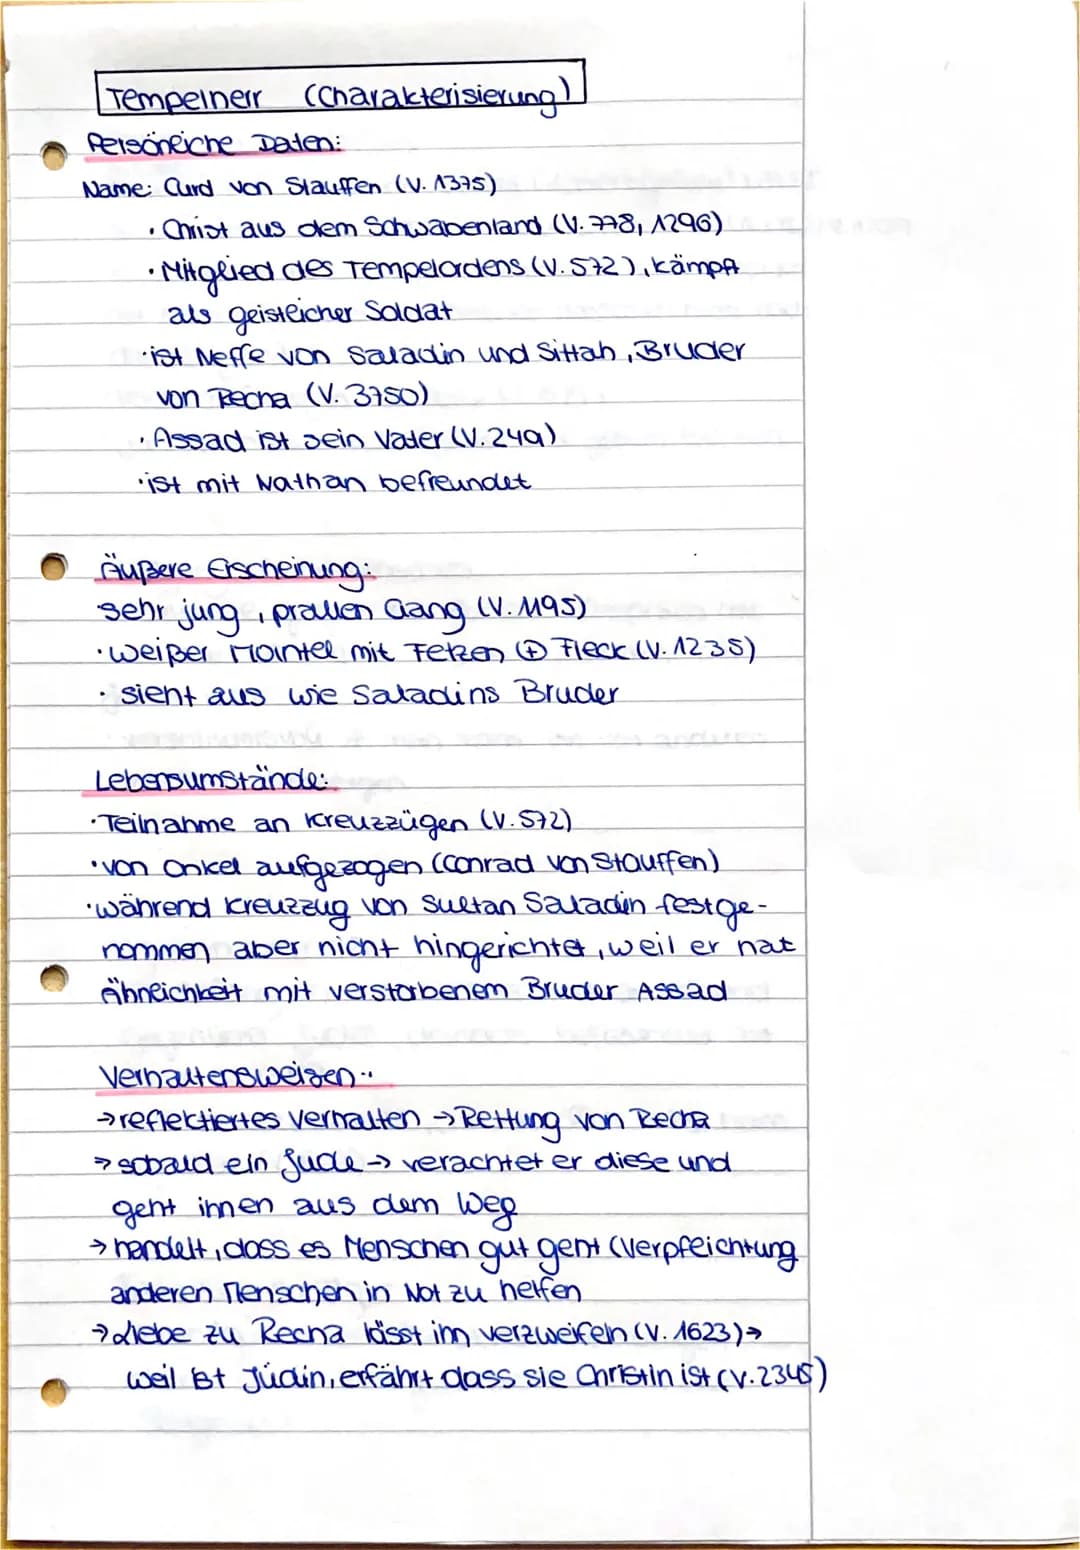 Tempelherr (Charakterisierung)
Persönliche Daten:
Name: Curd von Stauffen (V. 1375)
· Christ aus dem Schwabenland (V. 778, 1296)
· Mitglied des Tempelordens (V. 572), kämpft
als geistlicher Soldat
· ist Neffe von Saladin und Sittah, Bruder
von Recha (V. 3750)
· Assad ist sein Vater (V. 249)
· ist mit Nathan befreundet
Äußere Erscheinung:
sehr jung, prallen Gang (V. 1195)
· weißer Mantel mit Fetzen ⊕ Fleck (V. 1235)
· sieht aus wie Saladins Bruder
Lebensumstände:
· Teilnahme an Kreuzzügen (V. 572)
· von Onkel aufgezogen (Conrad von Stauffen)
· während Kreuzzug von Sultan Saladin festge-
nommen aber nicht hingerichtet, weil er hat
Ähnlichkeit mit verstorbenem Bruder Assad
Verhaltensweisen:
→ reflektiertes Verhalten → Rettung von Recha
→ sobald ein Jude → verachtet er diese und
geht ihnen aus dem Weg
→ handelt, dass es Menschen gut geht (Verpflichtung
anderen Menschen in Not zu helfen
→ Liebe zu Recha lässt ihn verzweifeln (V. 1623) →
weil ist Jüdin, erfährt dass sie Christin ist (V. 2345)